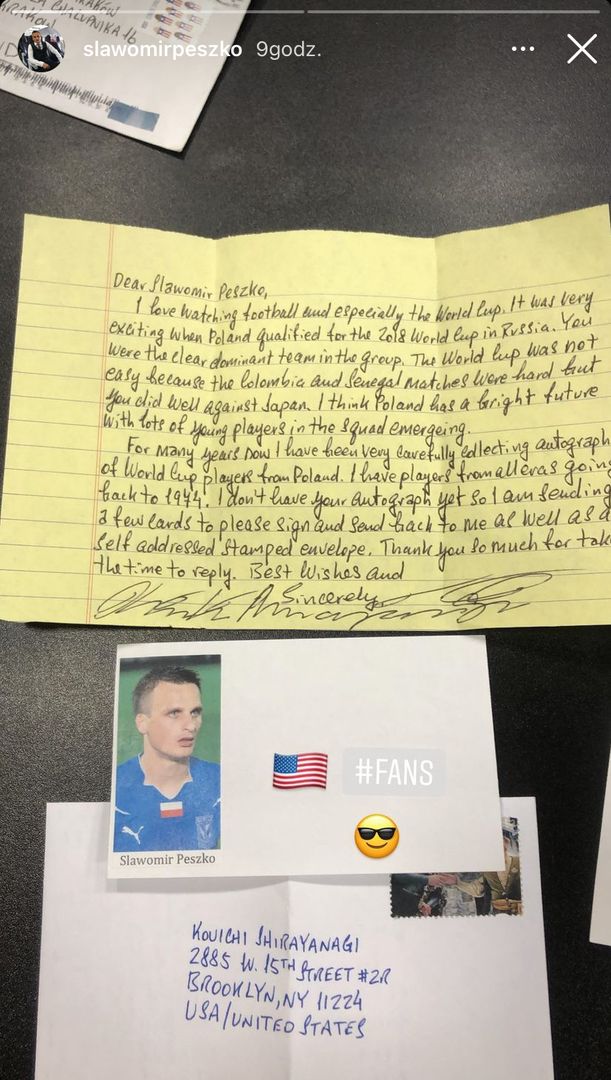 slawomirpeszko 9godz.
Dear Slawomir Peszko,
I love watching football and especially the World Cup. It was very
exciting when Poland qualified for the 2018 World Cup in Russia. You
were the clear dominant team in the group. The World Cup was not
easy because the Colombia and Senegal matches were hard but
you did well against Japan. I think Poland has a bright future
with lots of young players in the squad emergeing.
For many years now I have been very carefully collecting autograph
of World Cup players from Poland. I have players from all eras going
back to 1974. I don't have your autograph yet so I am sending
a few cards to please sign and send back to me as well as a
self addressed stamped envelope. Thank you so much for tak
the time to reply. Best Wishes and
Sincerely,
#FANS
Slawomir Peszko
KOUICHI SHIRAYANAGI
2885 W. 15TH STREET #2R
BROOKLYN, NY 11224
USA/UNITED STATES